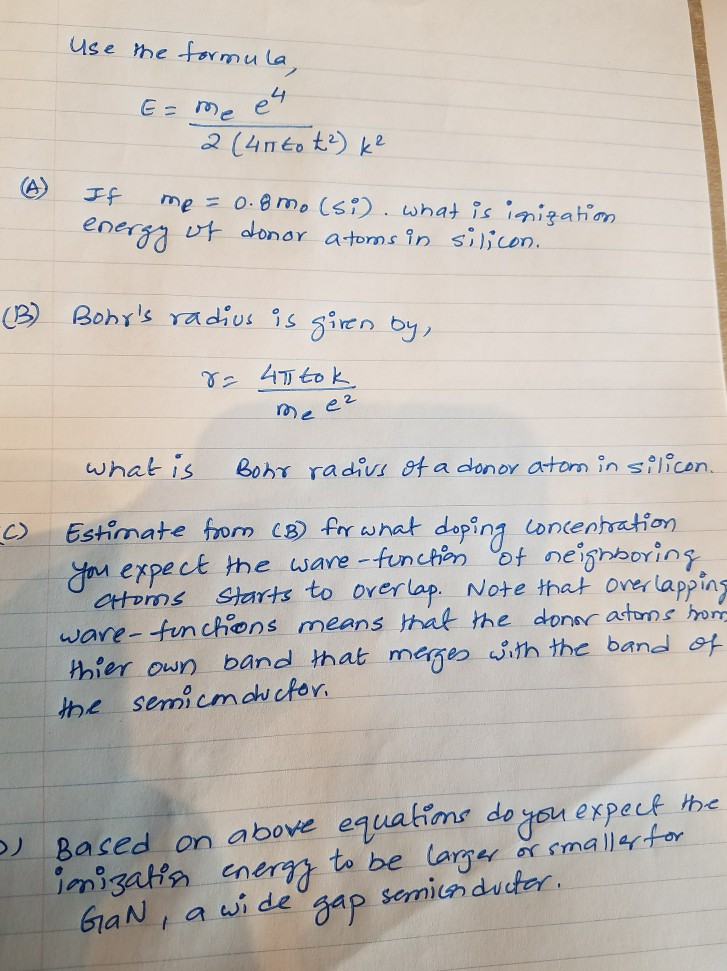 Use the formula,
E = me e⁴
2 (4πε0 ħ²) k²
(A) If me = 0.8 m0 (Si). what is inization
energy of donor atoms in silicon.
(B) Bohr's radius is given by,
r = 4πε0 k
me e²
what is Bohr radius of a donor atom in silicon.
C) Estimate from (B) for what doping concentration
you expect the wave-function of neighboring
atoms starts to overlap. Note that overlapping
wave-functions means that the donor atoms from
thier own band that merges with the band of
the semiconductor.
D) Based on above equations do you expect the
ionization energy to be larger or smaller for
GaN, a wide gap semiconductor.